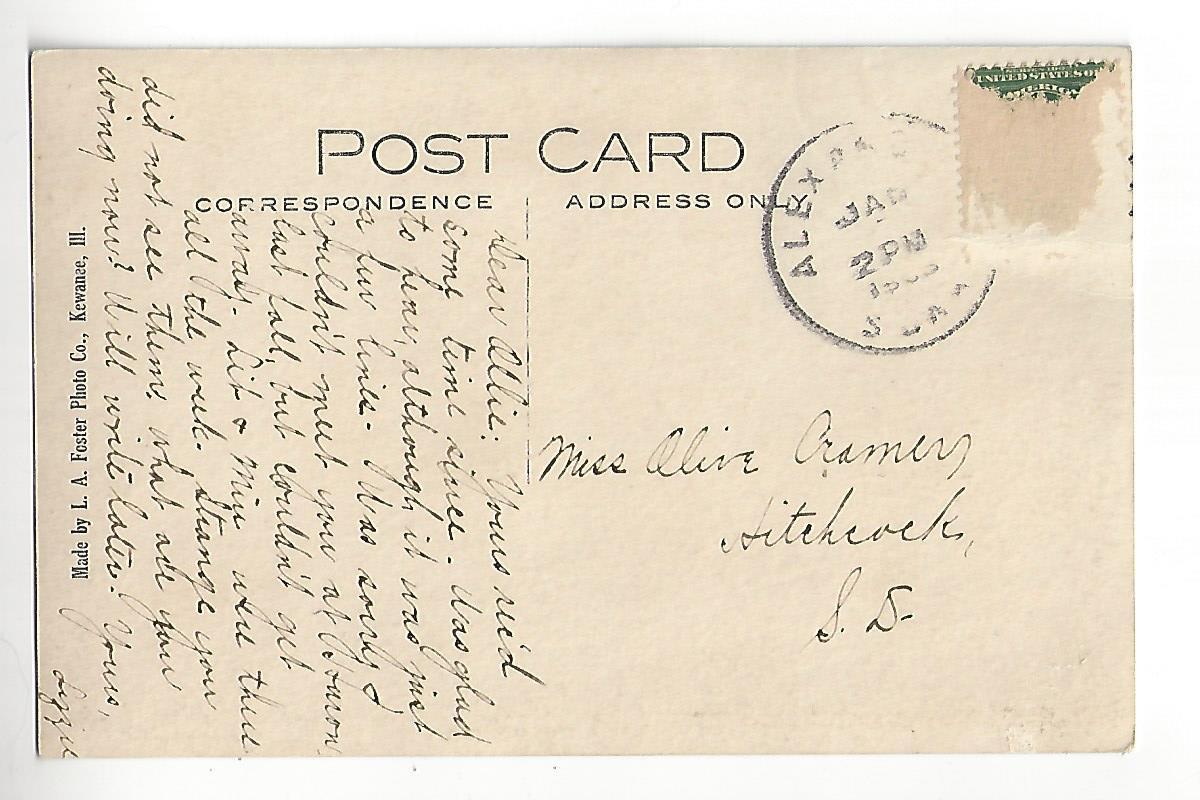 POST CARD
CORRESPONDENCE
ADDRESS ONLY
UNITED STATES OF
AMERICA
JAN
2 PM
S DAK
Miss Olive Cramer,
Hitchcock,
S. D.
Dear Olive: Yours rec'd
some time since. Was glad
to hear, although it was just
a few lines. Was sorry I
couldn't meet you at Huron
last fall, but couldn't get
away. Lit & Min were there
all the week. Strange you
did not see them. What are you
doing now? Will write later. Yours,
Lizzie
Made by L. A. Foster Photo Co., Kewanae, Ill.